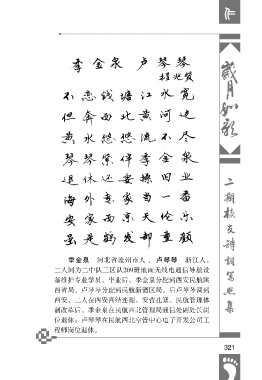 李金泉 卢琴琴
不恋钱塘江水宽
但奔西北黄河边
黄水悠悠流不尽
琴琴紧伴李金泉
退休还要操旧业
海外专家当一番
安家西京天伦乐
虽是鹤发却童颜
李金泉 河北省沧州市人，卢琴琴 浙江人。
二人同为二中队二区队209班地面无线电通信导航设
备维护专业学员。毕业后，李金泉分配到西安民航陕
西省局，卢琴琴分配到民航新疆区局。后卢琴琴调到
西安，二人在西安喜结连理、安营扎寨。民航管理体
制改革后，李金泉在民航西北管理局通信处副处长岗
位退休；卢琴琴在民航西北空管中心电子开发公司工
程师岗位退休。
岁月如歌
二期校友诗词写照集
321